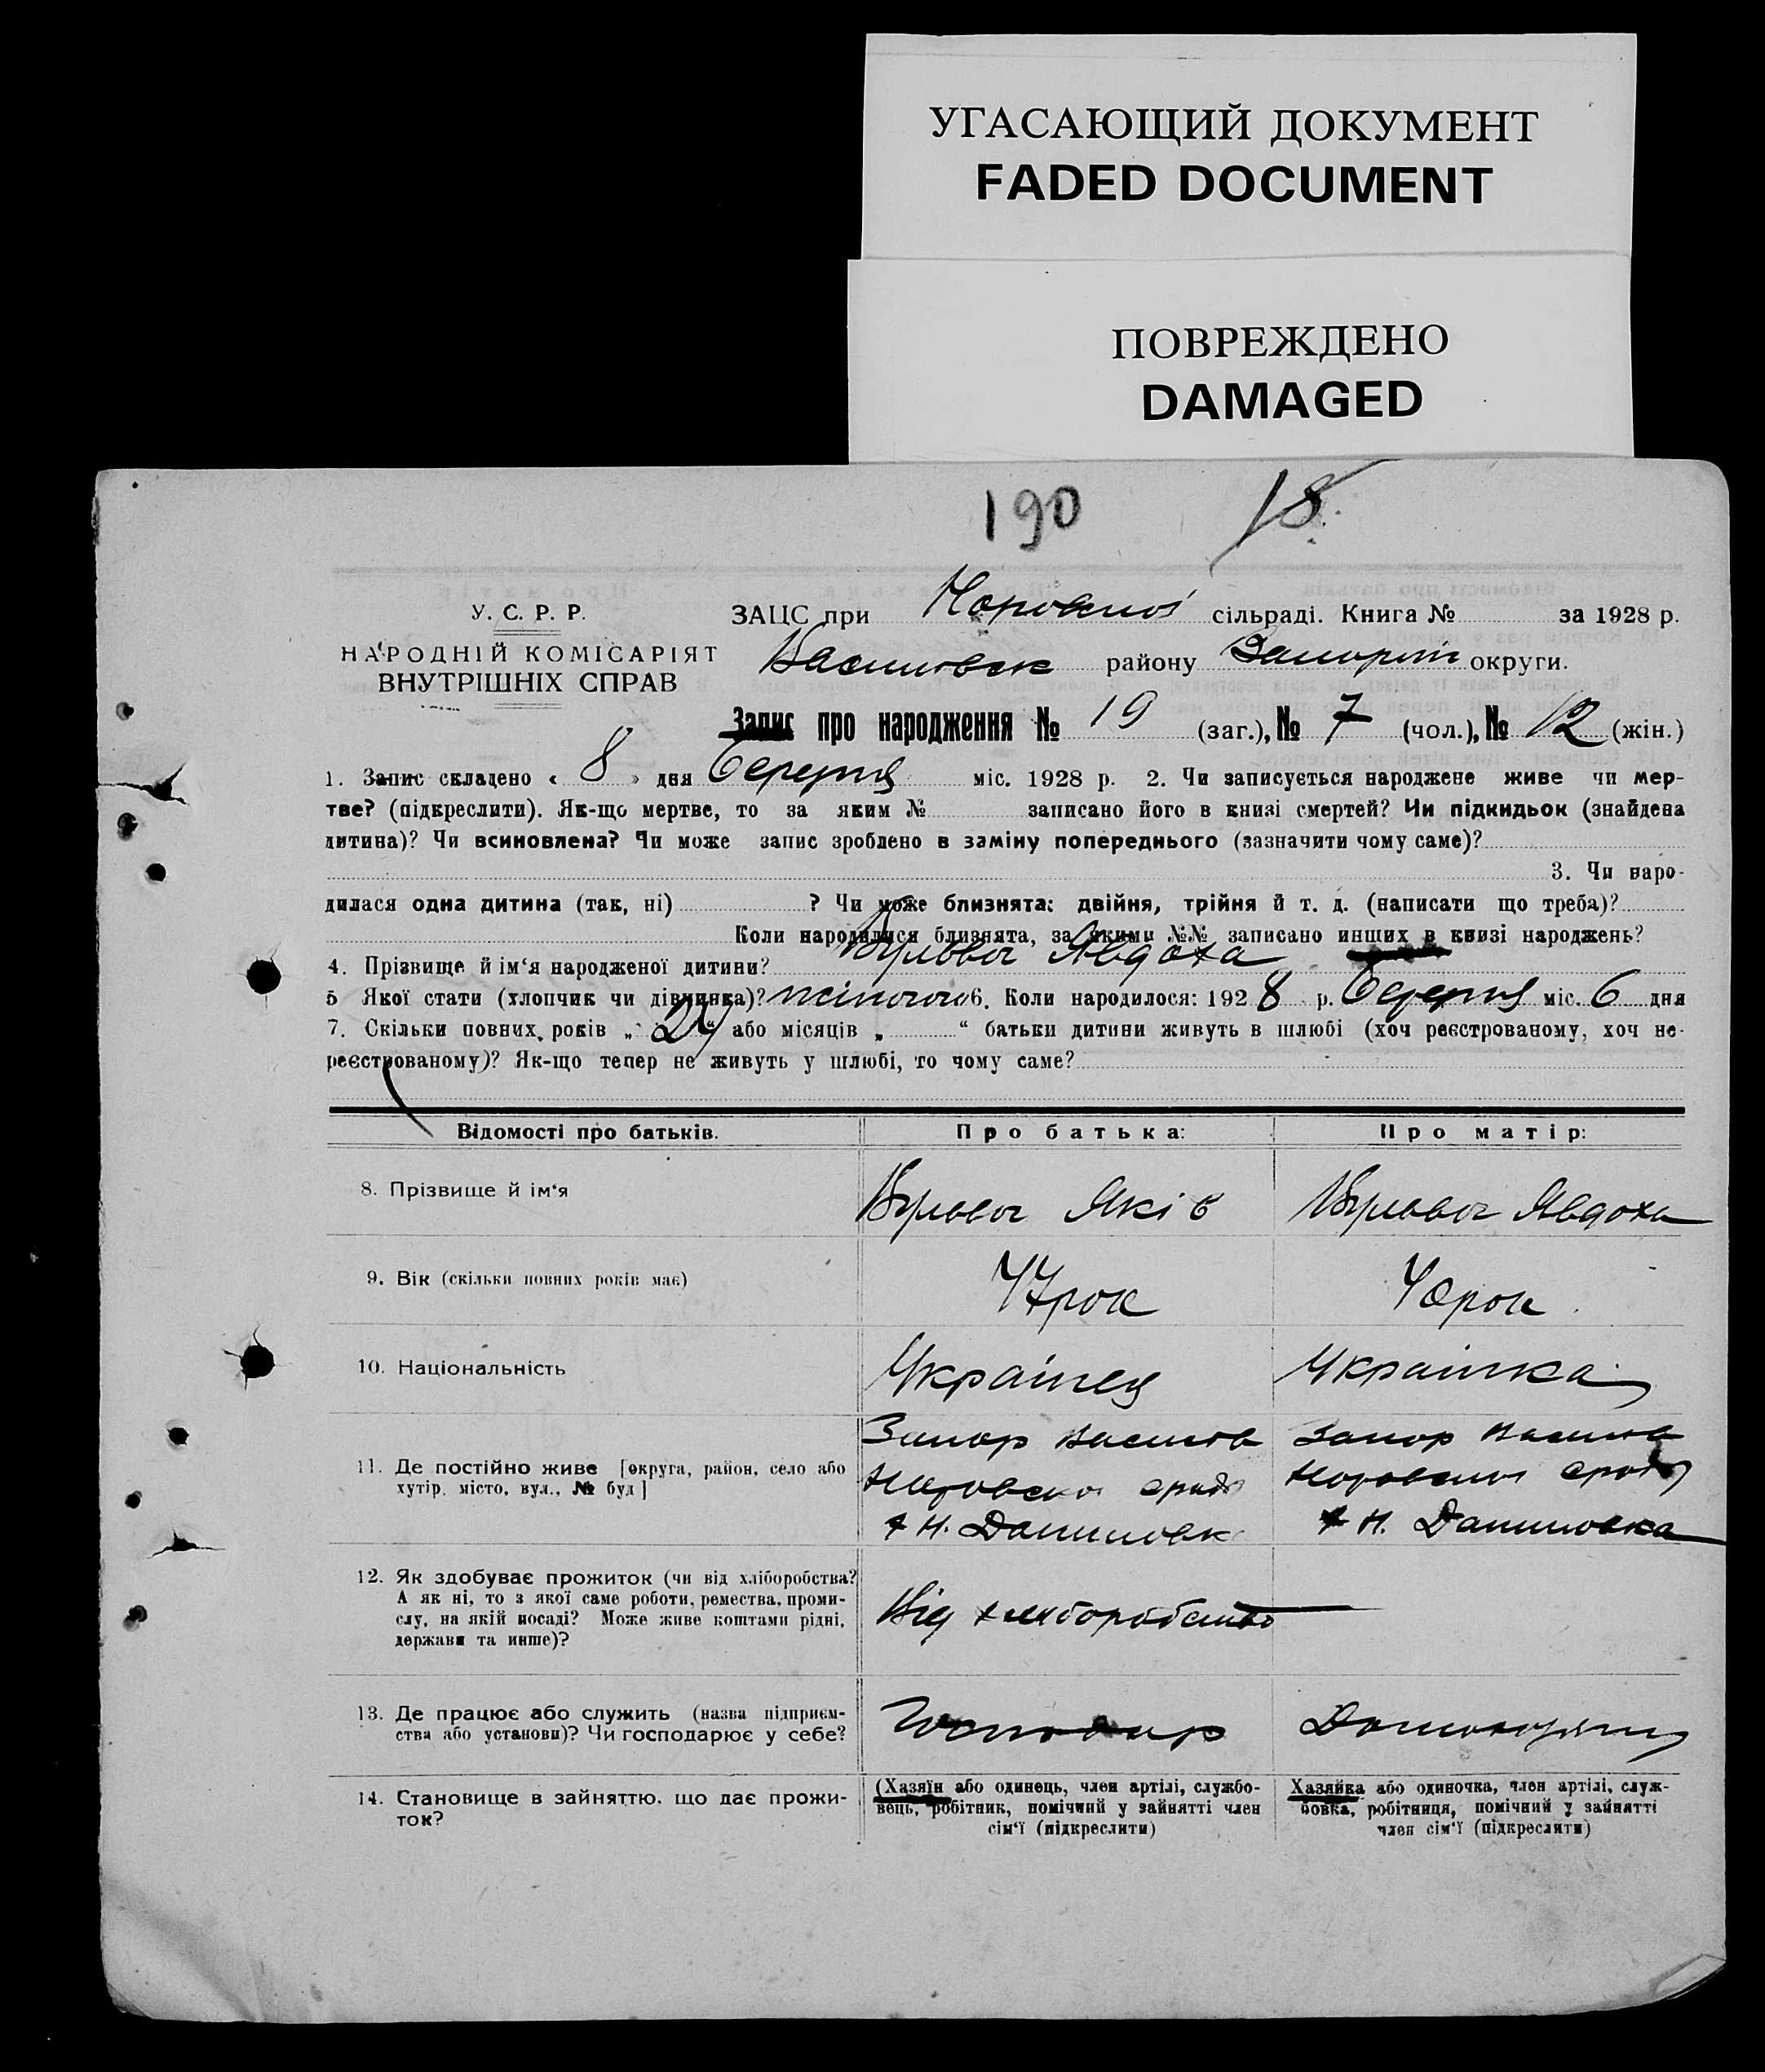 УГАСАЮЩИЙ ДОКУМЕНТ
FADED DOCUMENT
ПОВРЕЖДЕНО
DAMAGED
190 18
У. С. Р. Р.
НАРОДНІЙ КОМІСАРІЯТ
ВНУТРІШНІХ СПРАВ
ЗАЦС при сільраді. Книга № за 1928 р.
району округи.
Запис про народження № 19 (заг.), № 7 (чол.), № 12 (жін.)
1. Запис складено « 8 » дня Серпня міс. 1928 р. 2. Чи записується народжене живе чи мер-
тве? (підкреслити). Як-що мертве, то за яким № записано його в книзі смертей? Чи підкидьок (знайдена
дитина)? Чи всиновлена? Чи може запис зроблено в заміну попереднього (зазначити чому саме)?
3. Чи наро-
дилася одна дитина (так, ні) ? Чи може близнята: двійня, трійня й т. д. (написати що треба)?
Коли народилися близнята, за якими №№ записано инших в книзі народжень?
4. Прізвище й ім‘я народженої дитини? Явдоха
5 Якої стати (хлопчик чи дівчинка)? жіночою 6. Коли народилося: 1928 р. Серпня міс. 6 дня
7. Скільки повних років „ “ або місяців „ “ батьки дитини живуть в шлюбі (хоч реєстрованому, хоч не-
реєстрованому)? Як-що тепер не живуть у шлюбі, то чому саме?
Відомості про батьків. Про батька: Про матір:
8. Прізвище й ім‘я Яків Явдоха
9. Вік (скільки повних років має) 47 рок 40 рок
10. Національність Українец Українка
11. Де постійно живе [округа, район, село або
хутір, місто, вул., № буд]
Н. Даниловка
12. Як здобуває прожиток (чи від хліборобства?
А як ні, то з якої саме роботи, ремества, проми-
слу, на якій посаді? Може живе коштами рідні,
держави та инше)?
Від хлиборобства
13. Де працює або служить (назва підприєм-
ства або установи)? Чи господарює у себе?
Господар
14. Становище в зайняттю, що дає прожи-
ток?
(Хазяїн або одинець, член артілі, службо-
вець, робітник, помічний у зайнятті член
сім‘ї (підкреслити)
Хазяйка або одиночка, член артілі, служ-
бовка, робітниця, помічний у зайнятті
член сім‘ї (підкреслити)